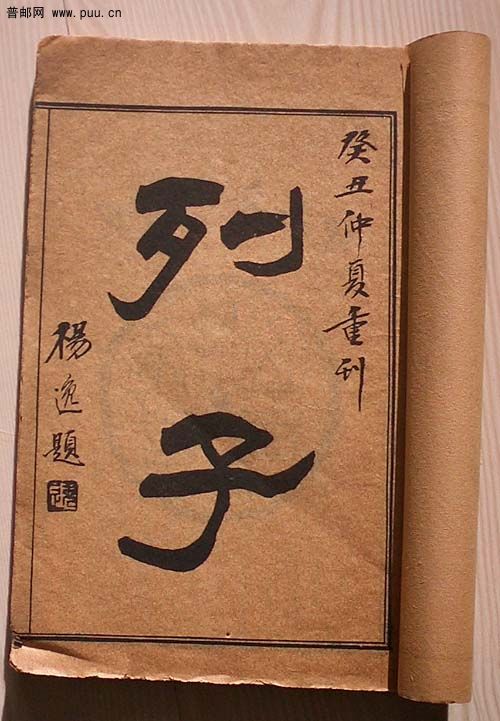 普邮网 www.puu.cn
癸丑仲夏重刊
列子
楊逸題